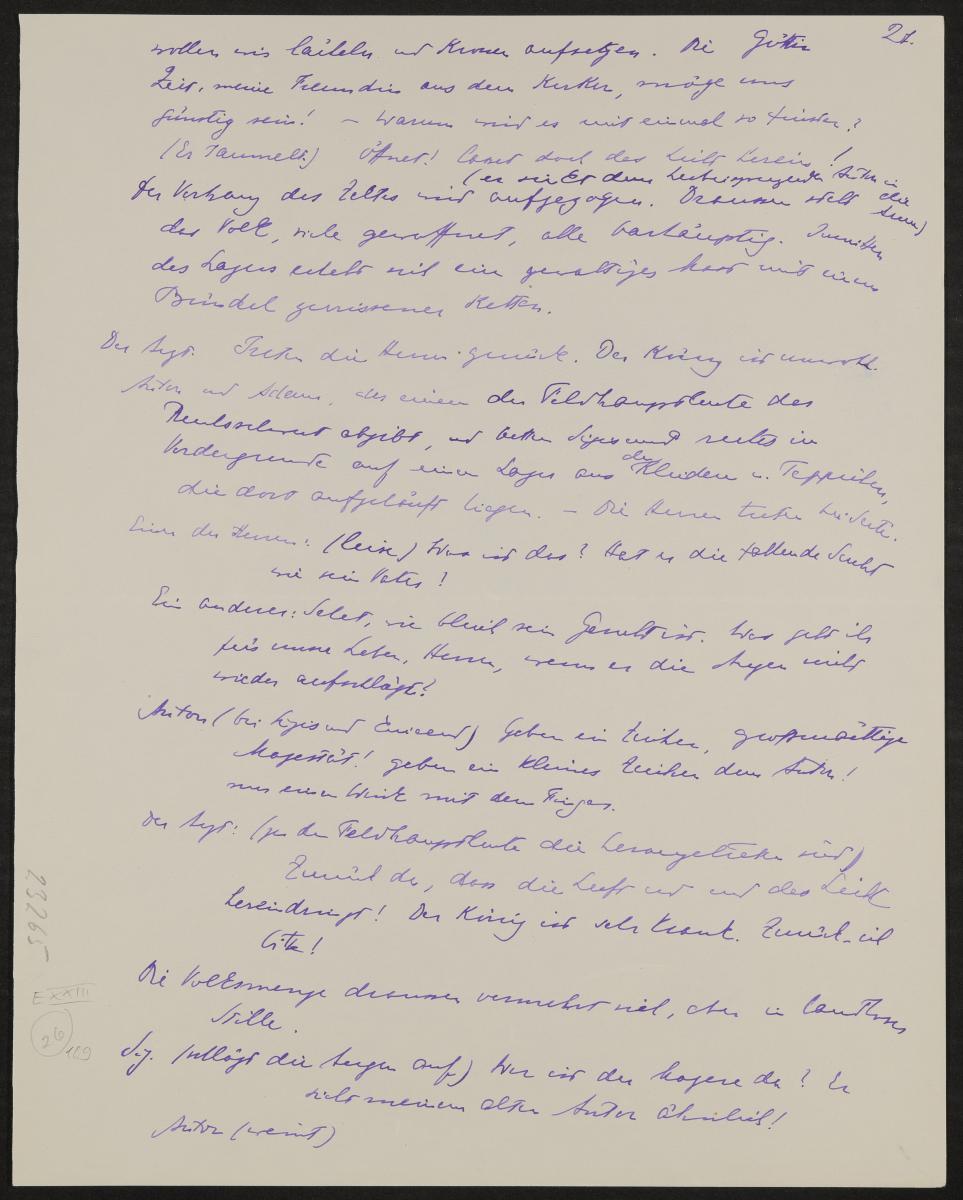 21.
wollen uns lächeln und Kronen aufsetzen. Die Göttin
Zeit, meine Freundin aus dem Kerker, möge uns
günstig sein! – Warum wird es mit einmal so finster?
(Er taumelt.) Öffnet! Lasset doch das Licht herein!
(er sinkt dem herbeispringenden Anton in die Arme)
Der Vorhang des Zeltes wird aufgezogen. Draussen steht
das Volk, viele gewaffnet, alle barhäuptig. Inmitten
des Lagers erhebt sich ein gewaltiges Kreuz mit einem
Bündel zerrissener Ketten.
Der Arzt. Treten die Herrn zurück. Der König ist unwohl.
Anton und Adam, der einen der Feldhauptleute des
Reichsschwert abgibt, und betten Sigismund rechts im
Vordergrunde auf einem Lager aus den Kleidern u. Teppichen,
die dort aufgehäuft liegen. – Die Herren treten bei Seite.
Einer der Herren: (leise) Was ist das? Hat er die fallende Sucht
wie sein Vater?
Ein anderer: Sehet, wie bleich sein Gesicht ist. Was gebt ihr
für unsre Leben, Herren, wenn er die Augen nicht
wieder aufschlägt?
Anton (bei Sigismund knieend) Geben ein Zeichen, grossmächtige
Majestät! geben ein kleines Zeichen dem Anton!
nur einen Wink mit dem Finger.
Der Arzt: (zu den Feldhauptleuten die herangetreten sind)
Zurück da, dass die Luft und das Licht
hereindringt! Der König ist sehr krank. Zurück, ich
bitte!
Die Volksmenge draussen vermehrt sich, aber in lautloser
Stille.
Sig. (schlägt die Augen auf) Wer ist der Magere da? Er
sieht meinem alten Anton ähnlich!
Anton (weint)
23265
E XXIII
26
109